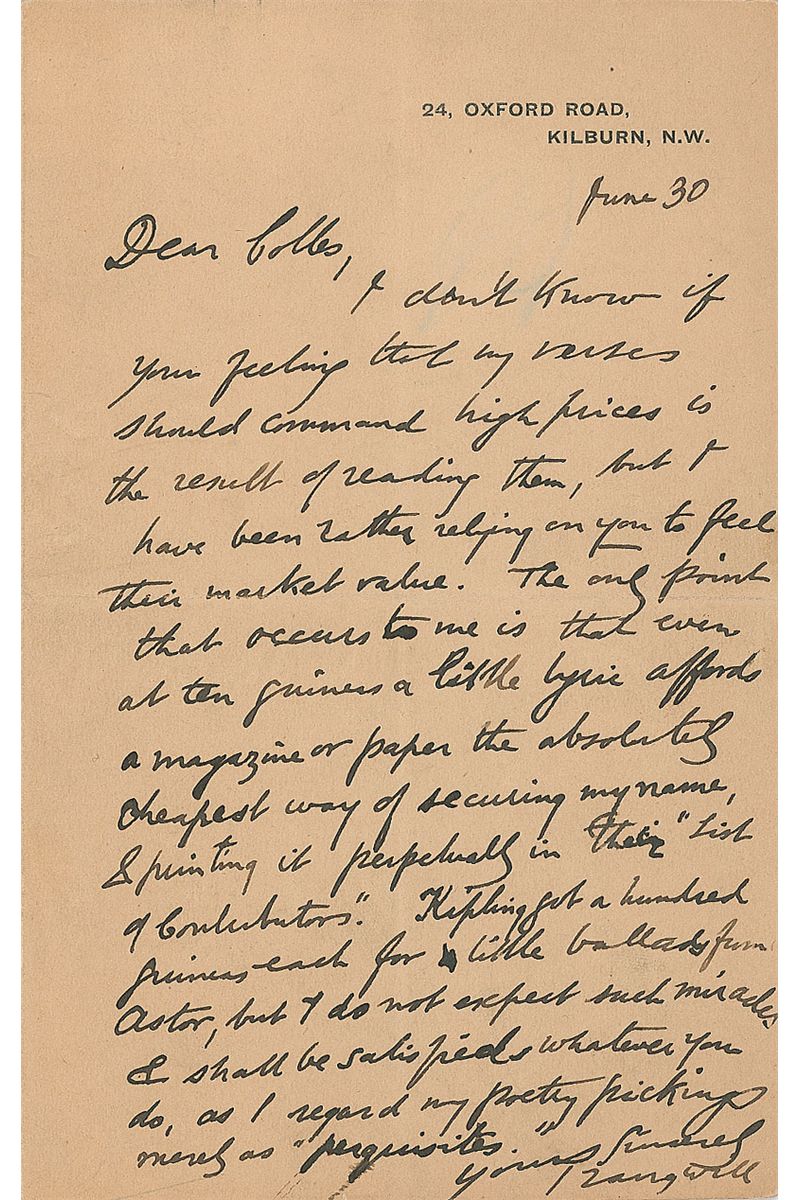 24, OXFORD ROAD,
KILBURN, N.W.
June 30
Dear Colles,
I don't know if
your feeling that my verses
should command high prices is
the result of reading them, but I
have been rather relying on you to feel
their market value. The only point
that occurs to me is that even
at ten guineas a little lyric affords
a magazine or paper the absolutely
cheapest way of securing my name,
& printing it perpetually in their "List
of Contributors". Kipling got a hundred
guineas each for little ballads from
Astor, but I do not expect such miracles
& shall be satisfied whatever you
do, as I regard my poetry pickings
merely as "perquisites."
Yours Sincerely
I Zangwill